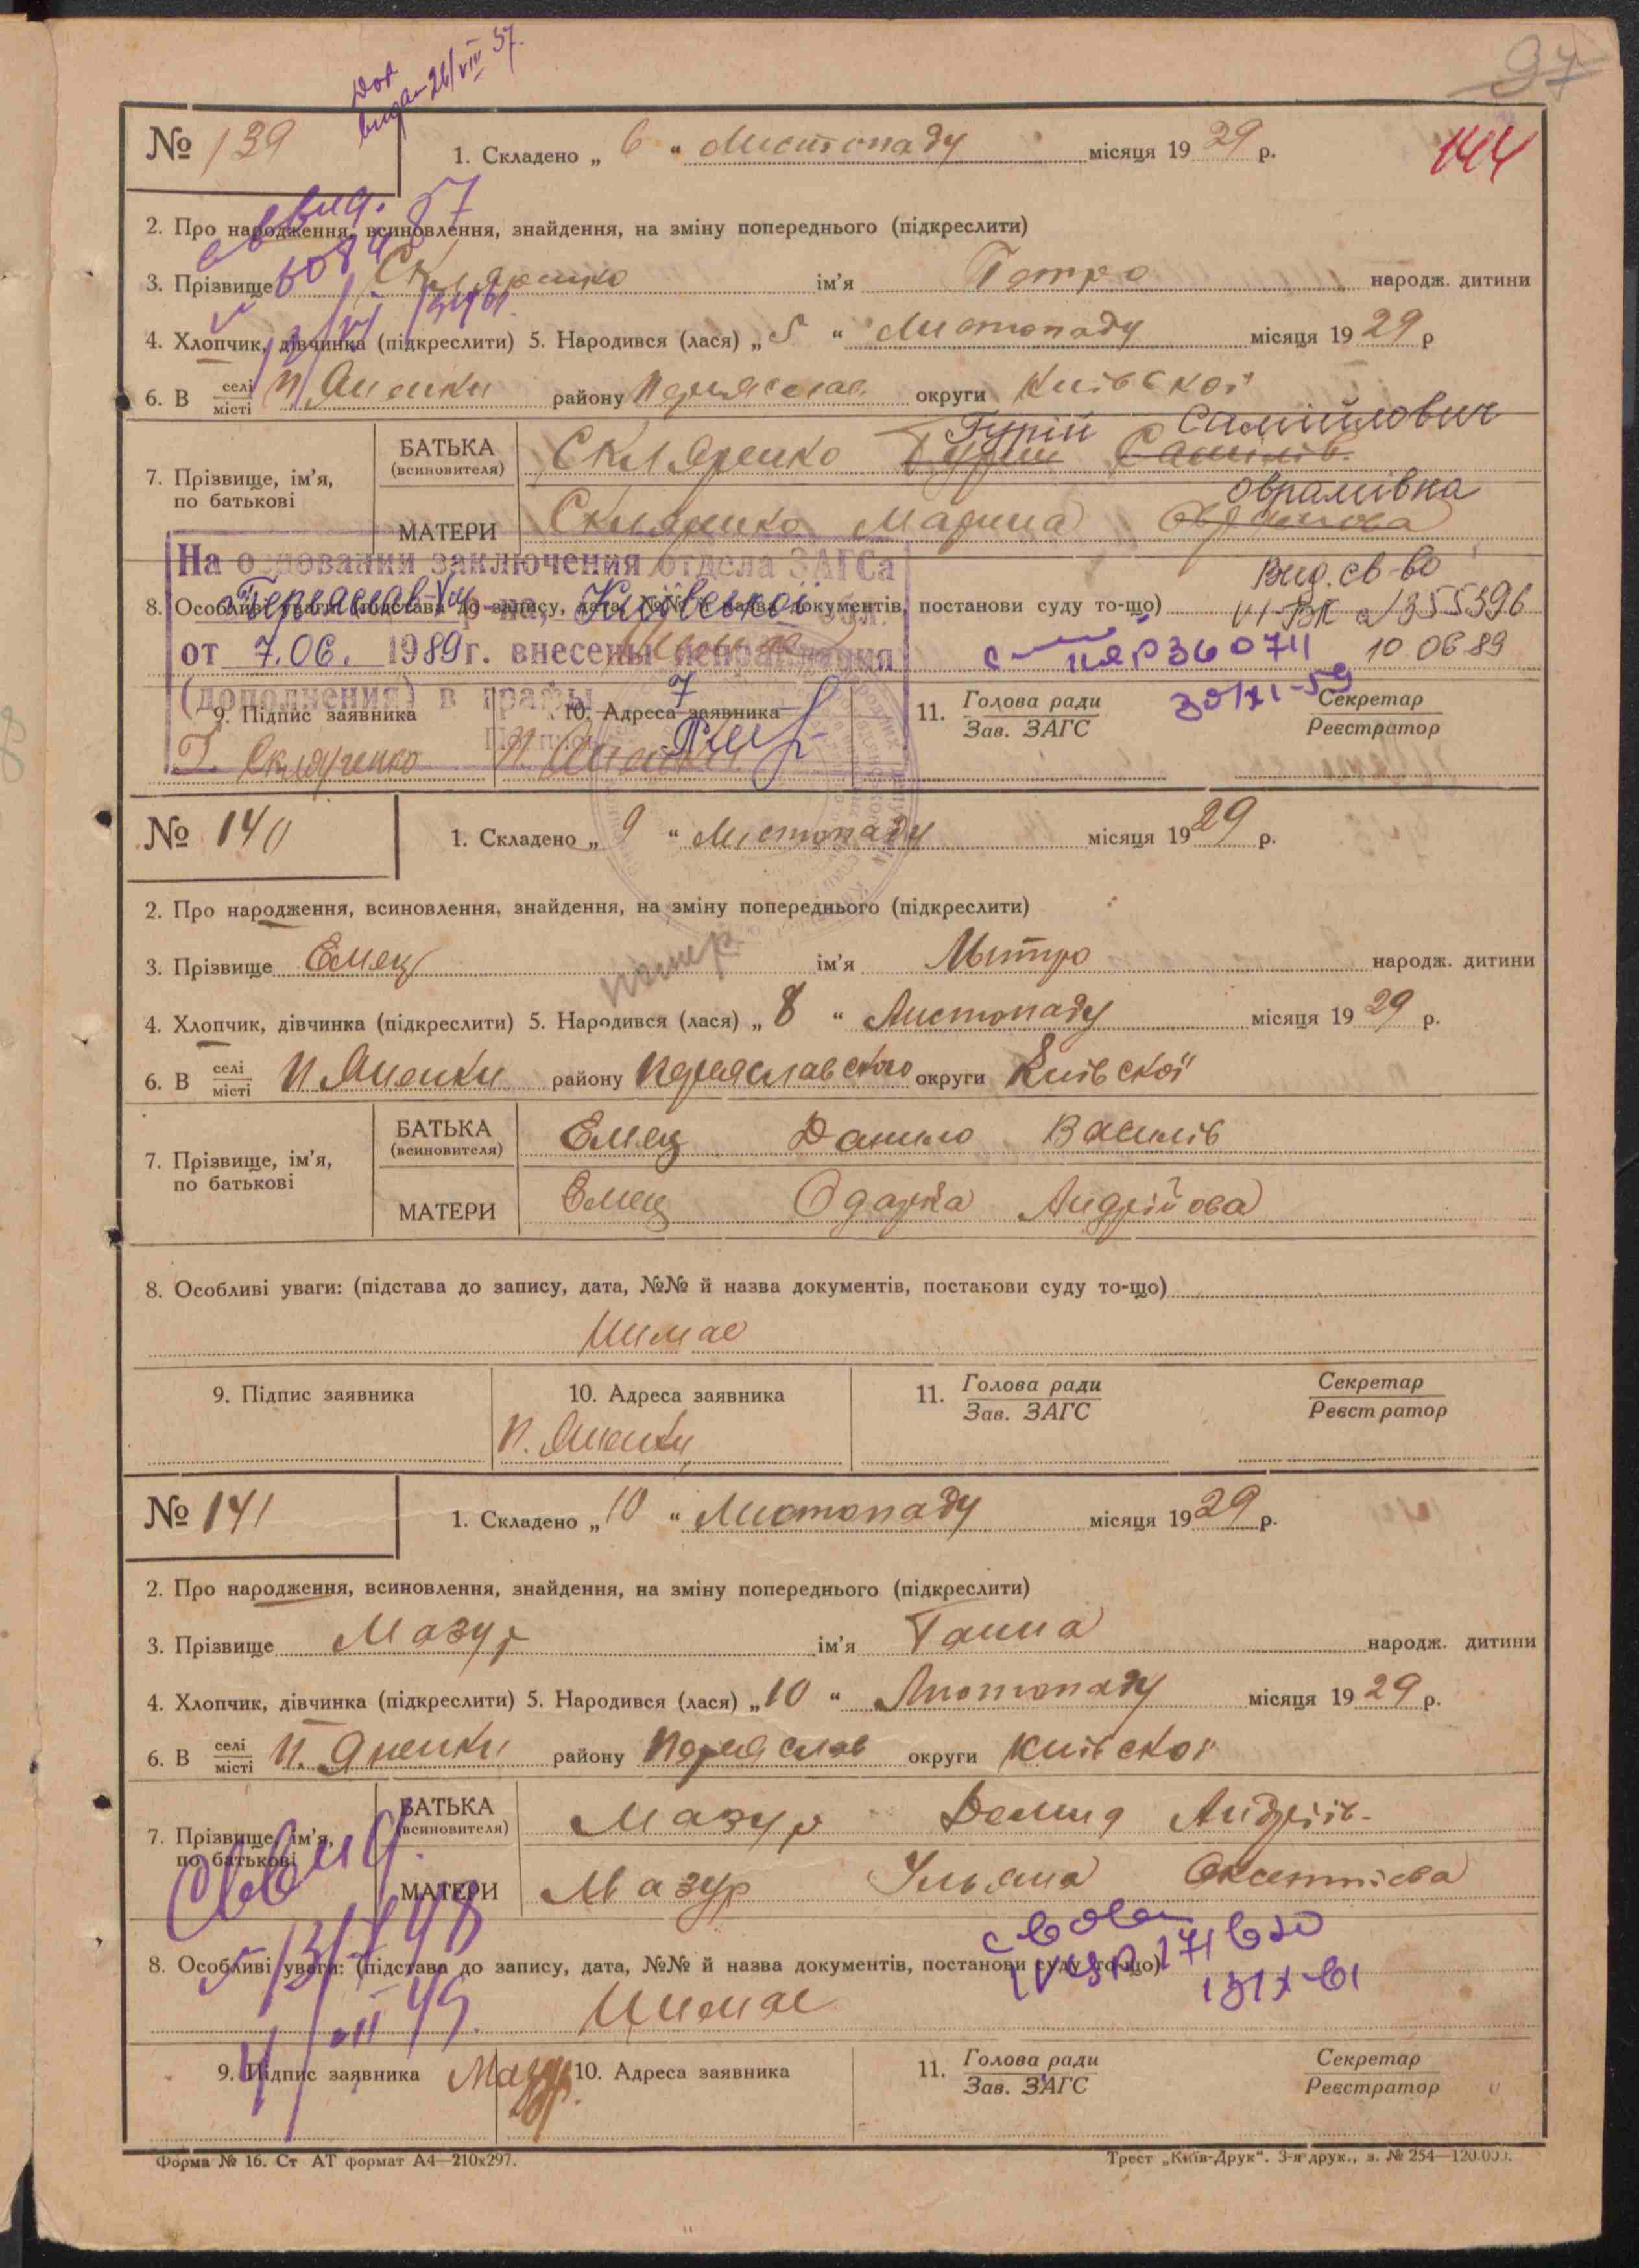 97
144
№ 139
1. Складено „ 6 “ Листопаду місяця 1929 р.
2. Про народження, всиновлення, знайдення, на зміну попереднього (підкреслити)
3. Прізвище Скляренко ім’я Петро народж. дитини
4. Хлопчик, дівчинка (підкреслити) 5. Народився (лася) „ 5 “ Листопаду місяця 1929 р
6. В селі/місті П. Яненки району Переяслав. округи Київської
Гурій Самійлович
7. Прізвище, ім’я, по батькові
БАТЬКА (всиновителя) Скляренко Гурій Самійлів.
Оврамівна
МАТЕРИ Скляренко Марина
На основании заключения отдела ЗАГСа
Переяслав-Хм р-на, Київської обл.
от 7.06. 1989 г. внесены исправления
(дополнения) в графы 7
8. Особливі уваги: (підстава до запису, дата, №№ й назва документів, постанови суду то-що)
Вид. св-во
355396
10.06.89
9. Підпис заявника
10. Адреса заявника
11. Голова ради / Зав. ЗАГС
30/XI-59
Секретар / Реєстратор
Г. Скляренко
П. Яненки
№ 140
1. Складено „ 9 “ Листопаду місяця 1929 р.
2. Про народження, всиновлення, знайдення, на зміну попереднього (підкреслити)
3. Прізвище Емец ім’я Митро народж. дитини
помер
4. Хлопчик, дівчинка (підкреслити) 5. Народився (лася) „ 8 “ Листопаду місяця 1929 р.
6. В селі/місті П. Яненки району Переяславского округи Київської
7. Прізвище, ім’я, по батькові
БАТЬКА (всиновителя) Емец Данило Василів
МАТЕРИ Емец Одарка Андрійова
8. Особливі уваги: (підстава до запису, дата, №№ й назва документів, постанови суду то-що)
Нимае
9. Підпис заявника
10. Адреса заявника
11. Голова ради / Зав. ЗАГС
Секретар / Реєстратор
П. Яненки
№ 141
1. Складено „ 10 “ Листопаду місяця 1929 р.
2. Про народження, всиновлення, знайдення, на зміну попереднього (підкреслити)
3. Прізвище Мазур ім’я Ганна народж. дитини
4. Хлопчик, дівчинка (підкреслити) 5. Народився (лася) „ 10 “ Листопаду місяця 1929 р.
6. В селі/місті П. Яненки району Переяслав округи Київської
7. Прізвище, ім’я, по батькові
БАТЬКА (всиновителя) Мазур Демид Андріїв.
МАТЕРИ Мазур Ульяна Оксентієва
8. Особливі уваги: (підстава до запису, дата, №№ й назва документів, постанови суду то-що)
Нимае
9. Підпис заявника Мазур
10. Адреса заявника
11. Голова ради / Зав. ЗАГС
Секретар / Реєстратор
Форма № 16. Ст АТ формат А4—210х297.
Трест „Київ-Друк“. 3-я друк., з. № 254—120.000.